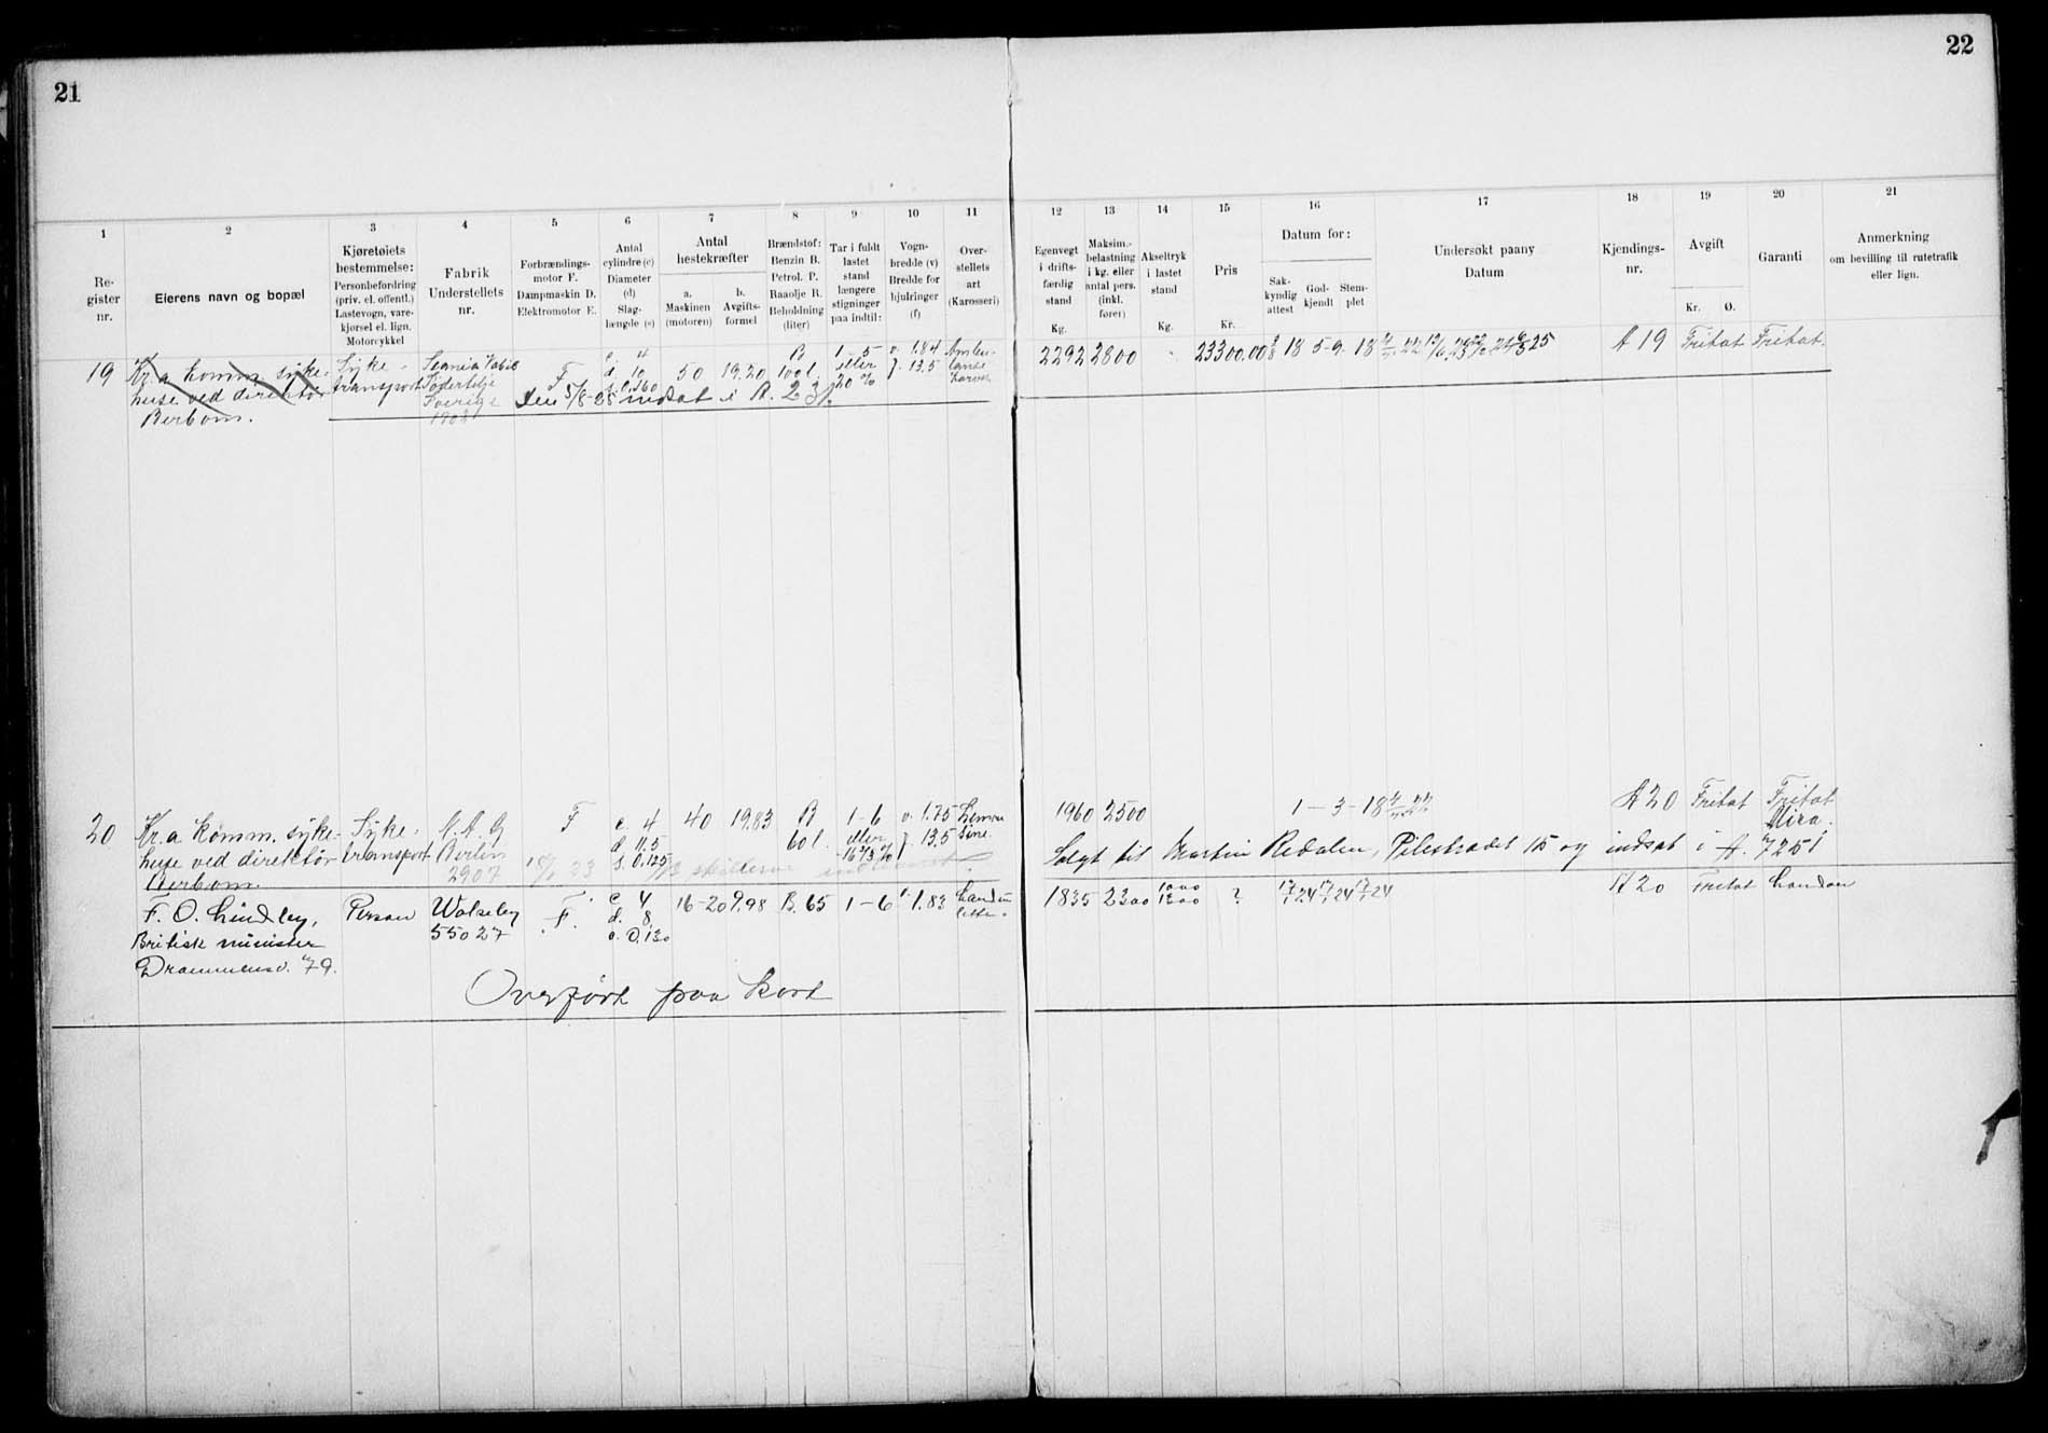 21
22
1 2 3 4 5 6 7 8 9 10 11
12 13 14 15 16 17 18 19 20 21
Re-
gister
nr.
Eierens navn og bopæl
Kjøretøiets
bestemmelse:
Personbefordring
(priv. el. offentl.)
Lastevogn, vare-
kjørsel el. lign.
Motorcykkel
Fabrik
Understellets
nr.
Forbrændings-
motor F.
Dampmaskin D.
Elektromotor E.
Antal
cylindre (c)
Diameter
(d)
Slag-
længde (s)
Antal
hestekræfter
a.
Maskinen
(motoren)
b.
Avgifts-
formel
Brændstof:
Benzin B.
Petrol. P.
Raaolje R.
Beholdning
(liter)
Tar i fuldt
lastet
stand
længere
stigninger
paa indtil:
Vogn-
bredde (v)
Bredde for
hjulringer
(f)
Over-
stellets
art
(Karosseri)
Egenvegt
i drifts-
færdig
stand
Kg.
Maksim.-
belastning
i kg. eller
antal pers.
(inkl.
fører)
Akseltryk
i lastet
stand
Kg.
Pris
Kr.
Datum for:
Sak-
kyndig
attest
God-
kjendt
Stem-
plet
Undersøkt paany
Datum
Kjendings-
nr.
Avgift
Kr. Ø.
Garanti
Anmerkning
om bevilling til rutetrafik
eller lign.
19 Kr.a komm. syke- Syke- Scania Vabis F c. 4 50 19.20 B 1-5 v. 1.84
huse ved direktør transport Södertelje d. 10 100 l. eller f. 13.5
Berbom. Sverige s. 0.160 20 %
Den 5/8-25 indsat i A. 231.
2292 2800 23300.00 18 5-9-18 A 19 Fritat Fritat.
20 Kr.a komm. syke- Syke- N.A.G F c. 4 40 19.83 B 1-6 v. 1.75 Limou
huse ved direktør transport Berlin d. 11.5 60 l. eller f. 13.5 sine.
Berbom. 2907 s. 0.125 16 2/3 %
1960 2500 1-3-18 A 20 Fritat Fritat
Mira.
Solgt til Martin Redalen, Pilestrædet 15 og indsat i A. 7251
F. O. Lindley, Person Wolseley F. c 4 16-20 9.98 B. 65 1-6 v. 1.83 Landau
Britisk minister 55027 d. 8 lette.
Drammensv. 79. s. 0.130
1835 2300 1000 ? 17/7 24 17/7 24 17/7 24 A 20 Fritat London
1300
Overført paa kort